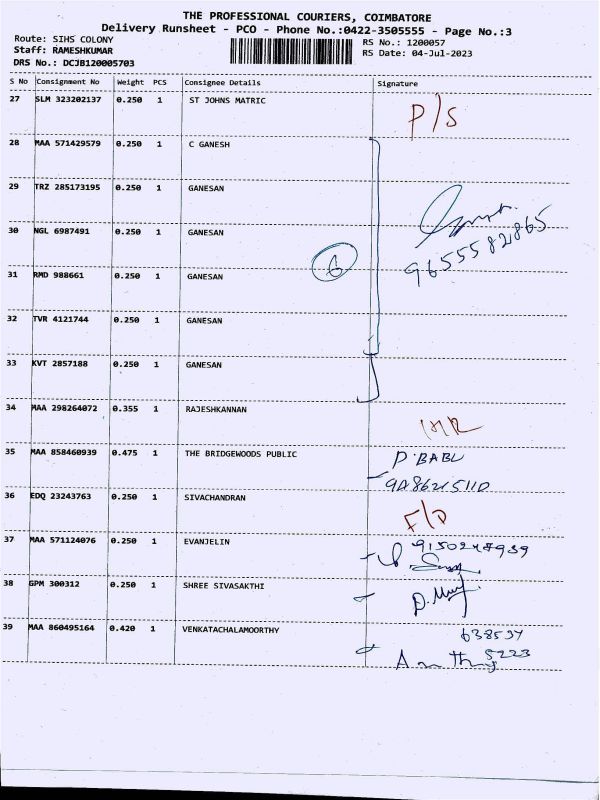 THE PROFESSIONAL COURIERS, COIMBATORE
Delivery Runsheet - PCO - Phone No.:0422-3505555 - Page No.:3
Route: SIHS COLONY
RS No.: 1200057
Staff: RAMESHKUMAR
RS Date: 04-Jul-2023
DRS No.: DCJB120005703
S No Consignment No Weight PCS Consignee Details Signature
27 SLM 323202137 0.250 1 ST JOHNS MATRIC P/S
28 MAA 571429579 0.250 1 C GANESH
29 TRZ 285173195 0.250 1 GANESAN
30 NGL 6987491 0.250 1 GANESAN 9655582865
31 RMD 988661 0.250 1 GANESAN 6
32 TVR 4121744 0.250 1 GANESAN
33 KVT 2857188 0.250 1 GANESAN
34 MAA 298264072 0.355 1 RAJESHKANNAN
35 MAA 858460939 0.475 1 THE BRIDGEWOODS PUBLIC P.BABU
36 EDQ 23243763 0.250 1 SIVACHANDRAN F/D
37 MAA 571124076 0.250 1 EVANJELIN
38 GPM 300312 0.250 1 SHREE SIVASAKTHI
39 MAA 860495164 0.420 1 VENKATACHALAMOORTHY
5223